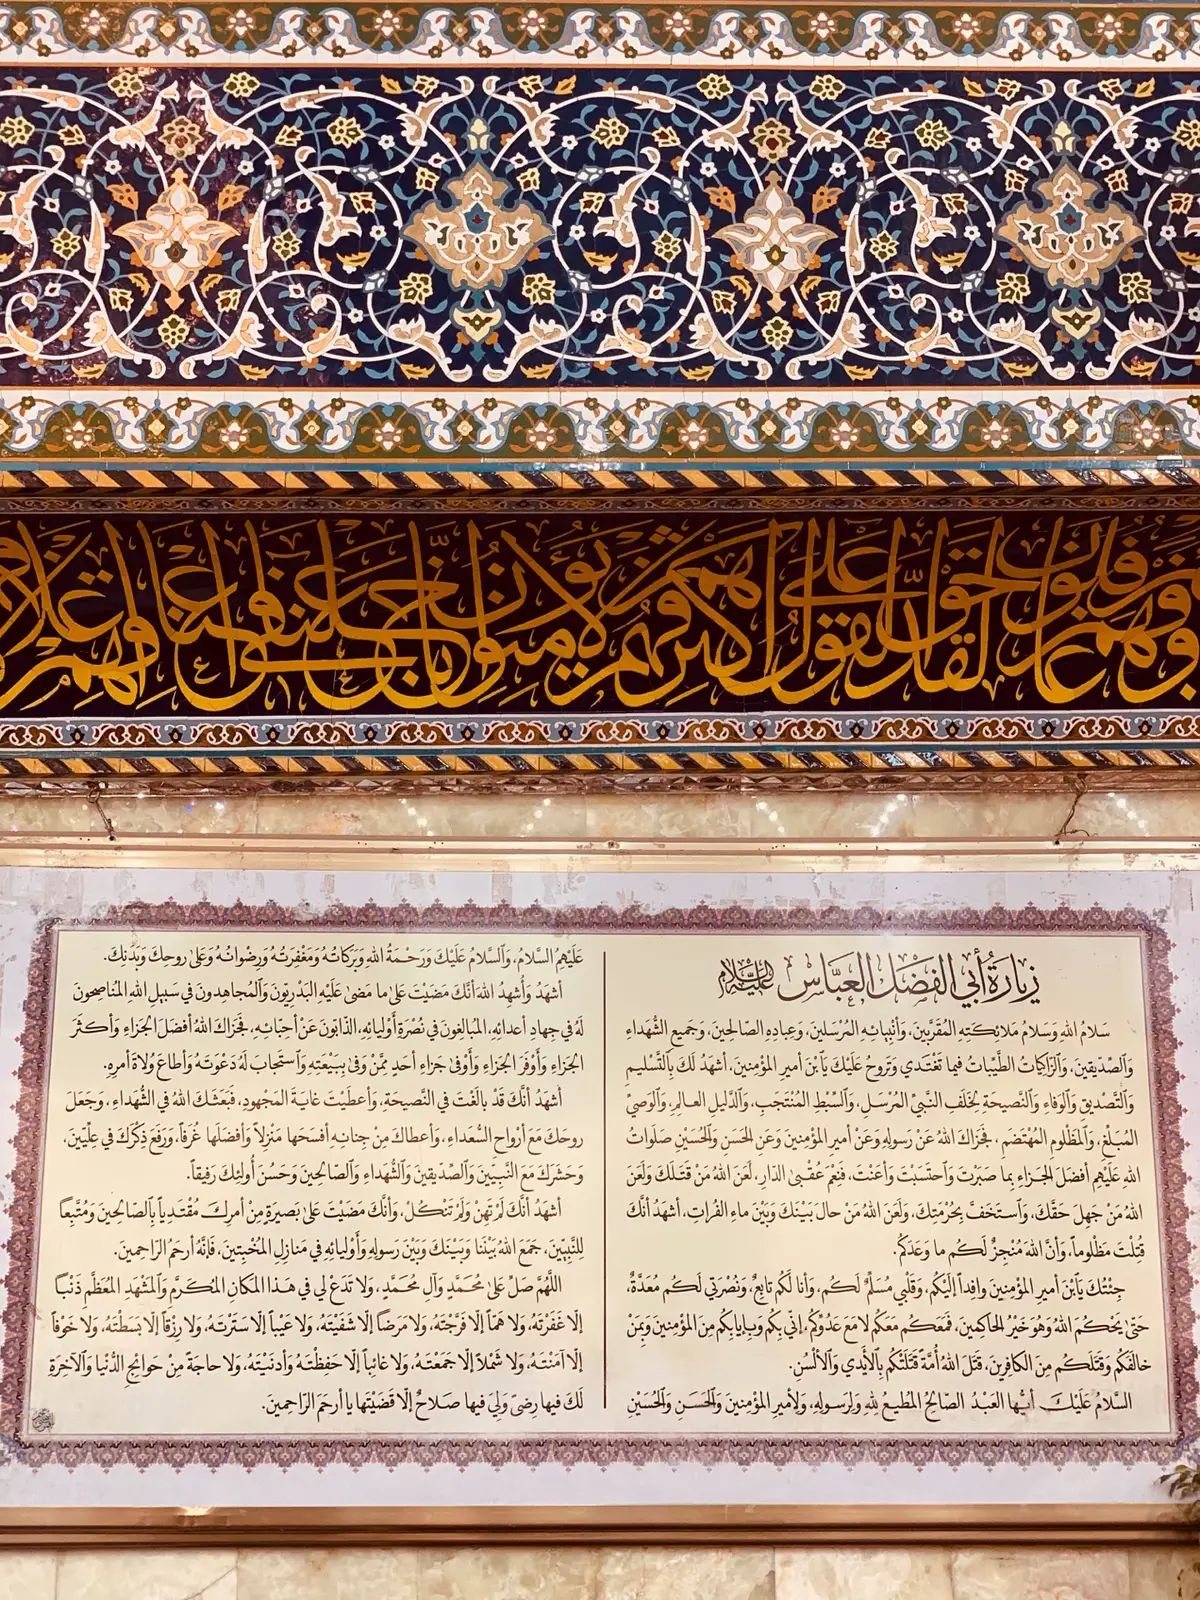 فهم غافلون لقد حق القول على أكثرهم فهم لا يؤمنون إنا جعلنا في أعناقهم أغلالا
زيارَةُ أبي الفَضلِ العَبّاس عَلَيْهِ السَّلَام
سَلامُ اللهِ وَسَلامُ مَلائِكَتِهِ المُقَرَّبينَ، وَأنبِيائِهِ المُرْسَلينَ، وَعِبادِهِ الصّالِحينَ، وَجَميعِ الشُّهَداءِ
وَالصِّدّيقينَ، وَالزّاكِياتُ الطَّيِّباتُ فيما تَغْتَدي وَتَروحُ عَلَيْكَ يَا بْنَ أميرِ المُؤْمِنينَ، أشهَدُ لَكَ بِالتَّسْليمِ
وَالتَّصْديقِ وَالوَفاءِ وَالنَّصيحَةِ لِخَلَفِ النَّبيِّ المُرْسَلِ، وَالسِّبْطِ المُنْتَجَبِ، وَالدَّليلِ العالِمِ، وَالوَصيِّ
المُبَلِّغِ، وَالمَظْلومِ المُهْتَضَمِ، فَجَزاكَ اللهُ عَنْ رَسولِهِ وَعَنْ أميرِ المُؤْمِنينَ وَعَنِ الحَسَنِ وَالحُسَيْنِ صَلَواتُ
اللهِ عَلَيْهِم أفضَلَ الجَزاءِ بِما صَبَرْتَ وَاحْتَسَبْتَ وَأعَنْتَ، فَنِعْمَ عُقْبىٰ الدّارِ، لَعَنَ اللهُ مَنْ قَتَلَكَ وَلَعَنَ
اللهُ مَنْ جَهِلَ حَقَّكَ، وَاسْتَخَفَّ بِحُرْمَتِكَ، وَلَعَنَ اللهُ مَنْ حالَ بَيْنَكَ وَبَيْنَ ماءِ الفُراتِ، أشهَدُ أنَّكَ
قُتِلْتَ مَظْلوماً، وَأنَّ اللهَ مُنْجِزٌ لَكُم ما وَعَدَكُم.
جِئْتُكَ يَا بْنَ أميرِ المُؤْمِنينَ وافِداً إلَيْكُم، وَقَلْبي مُسَلِّمٌ لَكُم، وَأنا لَكُم تابِعٌ، وَنُصْرَتي لَكُم مُعَدَّةٌ،
حَتّىٰ يَحْكُمَ اللهُ وَهُوَ خَيْرُ الحاكِمينَ، فَمَعَكُم مَعَكُم لا مَعَ عَدُوِّكُم، إنّي بِكُم وَبِإيابِكُم مِنَ المُؤْمِنينَ وَبِمَنْ
خالَفَكُم وَقَتَلَكُم مِنَ الكافِرينَ، قَتَلَ اللهُ أُمَّةً قَتَلَتْكُم بِالأيْدي وَالألْسُنِ.
السَّلامُ عَلَيْكَ أيُّها العَبْدُ الصّالِحُ المُطيعُ لِلّهِ وَلِرَسولِهِ، وَلأميرِ المُؤْمِنينَ وَالحَسَنِ وَالحُسَيْنِ
عَلَيْهِمُ السَّلامُ، وَالسَّلامُ عَلَيْكَ وَرَحْمَةُ اللهِ وَبَرَكاتُهُ وَمَغْفِرَتُهُ وَرِضْوانُهُ وَعَلىٰ روحِكَ وَبَدَنِكَ.
أشهَدُ وَأُشهِدُ اللهَ أنَّكَ مَضَيْتَ عَلىٰ ما مَضىٰ عَلَيْهِ البَدْرِيّونَ وَالمُجاهِدونَ في سَبيلِ اللهِ المُناصِحونَ
لَهُ في جِهادِ أعدائِهِ، المُبالِغونَ في نُصْرَةِ أوْلِيائِهِ، الذّابّونَ عَنْ أحِبّائِهِ، فَجَزاكَ اللهُ أفضَلَ الجَزاءِ وَأكْثَرَ
الجَزاءِ وَأوْفَرَ الجَزاءِ وَأوْفىٰ جَزاءِ أحَدٍ مِمَّنْ وَفىٰ بِبَيْعَتِهِ وَاسْتَجابَ لَهُ دَعْوَتَهُ وَأطاعَ وُلاةَ أمرِهِ.
أشهَدُ أنَّكَ قَدْ بالَغْتَ في النَّصيحَةِ، وَأعطَيْتَ غايَةَ المَجْهودِ، فَبَعَثَكَ اللهُ في الشُّهَداءِ، وَجَعَلَ
روحَكَ مَعَ أرْواحِ السُّعَداءِ، وَأعطاكَ مِنْ جِنانِهِ أفسَحَها مَنْزِلاً وَأفضَلَها غُرَفاً، وَرَفَعَ ذِكْرَكَ في عِلِّيّينَ،
وَحَشَرَكَ مَعَ النَّبِيّينَ وَالصِّدّيقينَ وَالشُّهَداءِ وَالصّالِحينَ وَحَسُنَ أُولئِكَ رَفيقاً.
أشهَدُ أنَّكَ لَمْ تَهِنْ وَلَمْ تَنْكُلْ، وَأنَّكَ مَضَيْتَ عَلىٰ بَصيرَةٍ مِنْ أمرِكَ مُقْتَدِياً بِالصّالِحينَ وَمُتَّبِعاً
لِلنَّبِيّينَ، جَمَعَ اللهُ بَيْنَنا وَبَيْنَكَ وَبَيْنَ رَسولِهِ وَأوْلِيائِهِ في مَنازِلِ المُخْبِتينَ، فَإنَّهُ أرحَمُ الرّاحِمينَ.
اللّهُمَّ صَلِّ عَلىٰ مُحَمَّدٍ وَآلِ مُحَمَّدٍ، وَلا تَدَعْ لي في هَذا المَكانِ المُكَرَّمِ وَالمَشْهَدِ المُعَظَّمِ ذَنْباً
إلّا غَفَرْتَهُ، وَلا هَمّاً إلّا فَرَّجْتَهُ، وَلا مَرَضاً إلّا شَفَيْتَهُ، وَلا عَيْباً إلّا سَتَرْتَهُ، وَلا رِزْقاً إلّا بَسَطْتَهُ، وَلا خَوْفاً
إلّا آمَنْتَهُ، وَلا شَمْلاً إلّا جَمَعْتَهُ، وَلا غائِباً إلّا حَفِظْتَهُ وَأدنَيْتَهُ، وَلا حاجَةً مِنْ حَوائِجِ الدُّنْيا وَالآخِرَةِ
لَكَ فيها رِضىً وَلِيَ فيها صَلاحٌ إلّا قَضَيْتَها يا أرحَمَ الرّاحِمينَ.